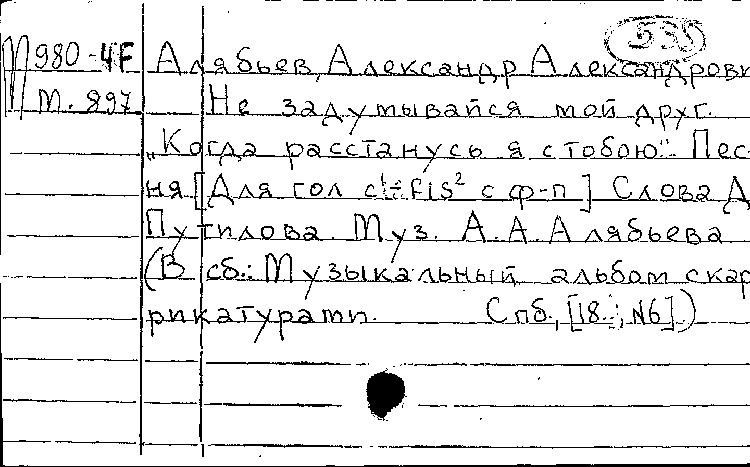 535
М980-4F Алябьев, Александр Александрови
м. 897 Не задумывайся мой друг.
„Когда расстанусь я с тобою". Пес-
ня [Для гол c¹÷fis² с ф-п] Слова Д
Путилова Муз. А.А.Алябьева
(В сб.: Музыкальный альбом с кар
рикатурами. Спб., [18..; №6].)